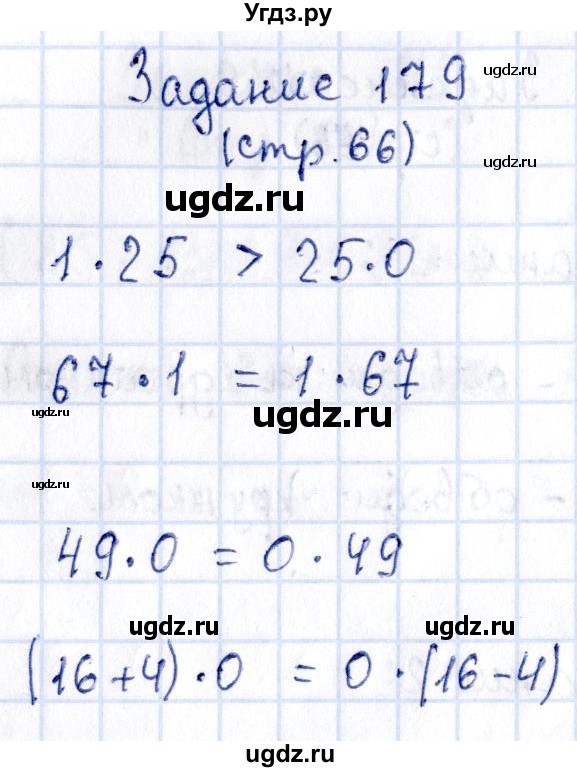 Угдз.ру
Задание 179
ugdz.ru
(стр.66)
ugdz.ru
ugdz.ru
1 · 25 > 25 · 0
67 · 1 = 1 · 67
ugdz.ru
ugdz.ru
ugdz.ru
49 · 0 = 0 · 49
ugdz.ru
ugdz.ru
(16+4) · 0 = 0 · (16-4)
ugdz.ru